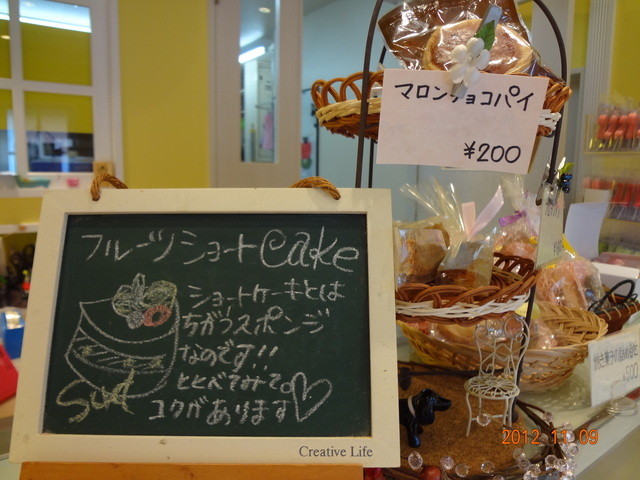 フルーツショートcake
ショートケーキとは
ちがうスポンジ
なのです!!
ととべてみて。
コクがあります
Creative Life
マロンチョコパイ
¥200
2012 11 09